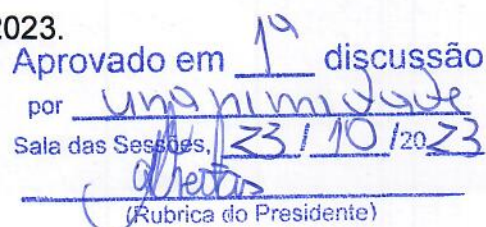 2023.
Aprovado em 1ª discussão
por unanimidade
Sala das Sessões, 23 / 10 /2023
(Rubrica do Presidente)